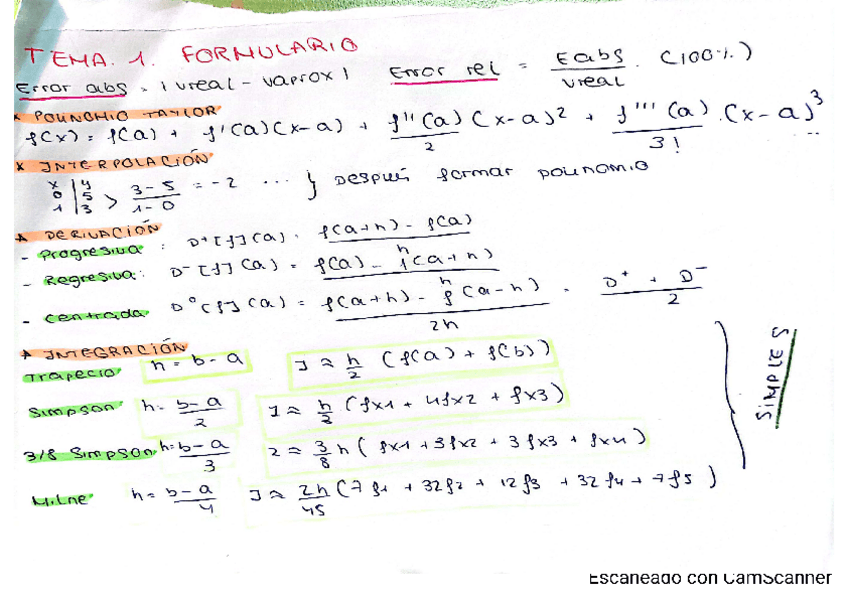 TEMA. 1. FORMULARIO
Error abs = | vreal - vaprox | Error rel = Eabs / vreal . (100%)
* POLINOMIO TAYLOR
f(x) = f(a) + f'(a)(x-a) + f''(a)/2 (x-a)² + f'''(a)/3! . (x-a)³ ..
* INTERPOLACIÓN
x | y
0 | 5
1 | 3 > 3-5 / 1-0 = -2 ... } Después formar polinomio
* DERIVACIÓN
- Progresiva: D⁺[f](a) = f(a+h) - f(a) / h
- Regresiva: D⁻[f](a) = f(a) - f(a+h) / h
- Centrada D°[f](a) = f(a+h) - f(a-h) / 2h = D⁺ + D⁻ / 2
* INTEGRACIÓN
Trapecio h = b-a I ≈ h/2 (f(a) + f(b))
Simpson h = b-a / 2 I ≈ h/3 (fx1 + 4fx2 + fx3)
3/8 Simpson h = b-a / 3 I ≈ 3/8 h (fx1 + 3fx2 + 3fx3 + fx4)
Milne h = b-a / 4 I ≈ 2h/45 (7f1 + 32f2 + 12f3 + 32f4 + 7f5)
SIMPLES
Escaneado con CamScanner